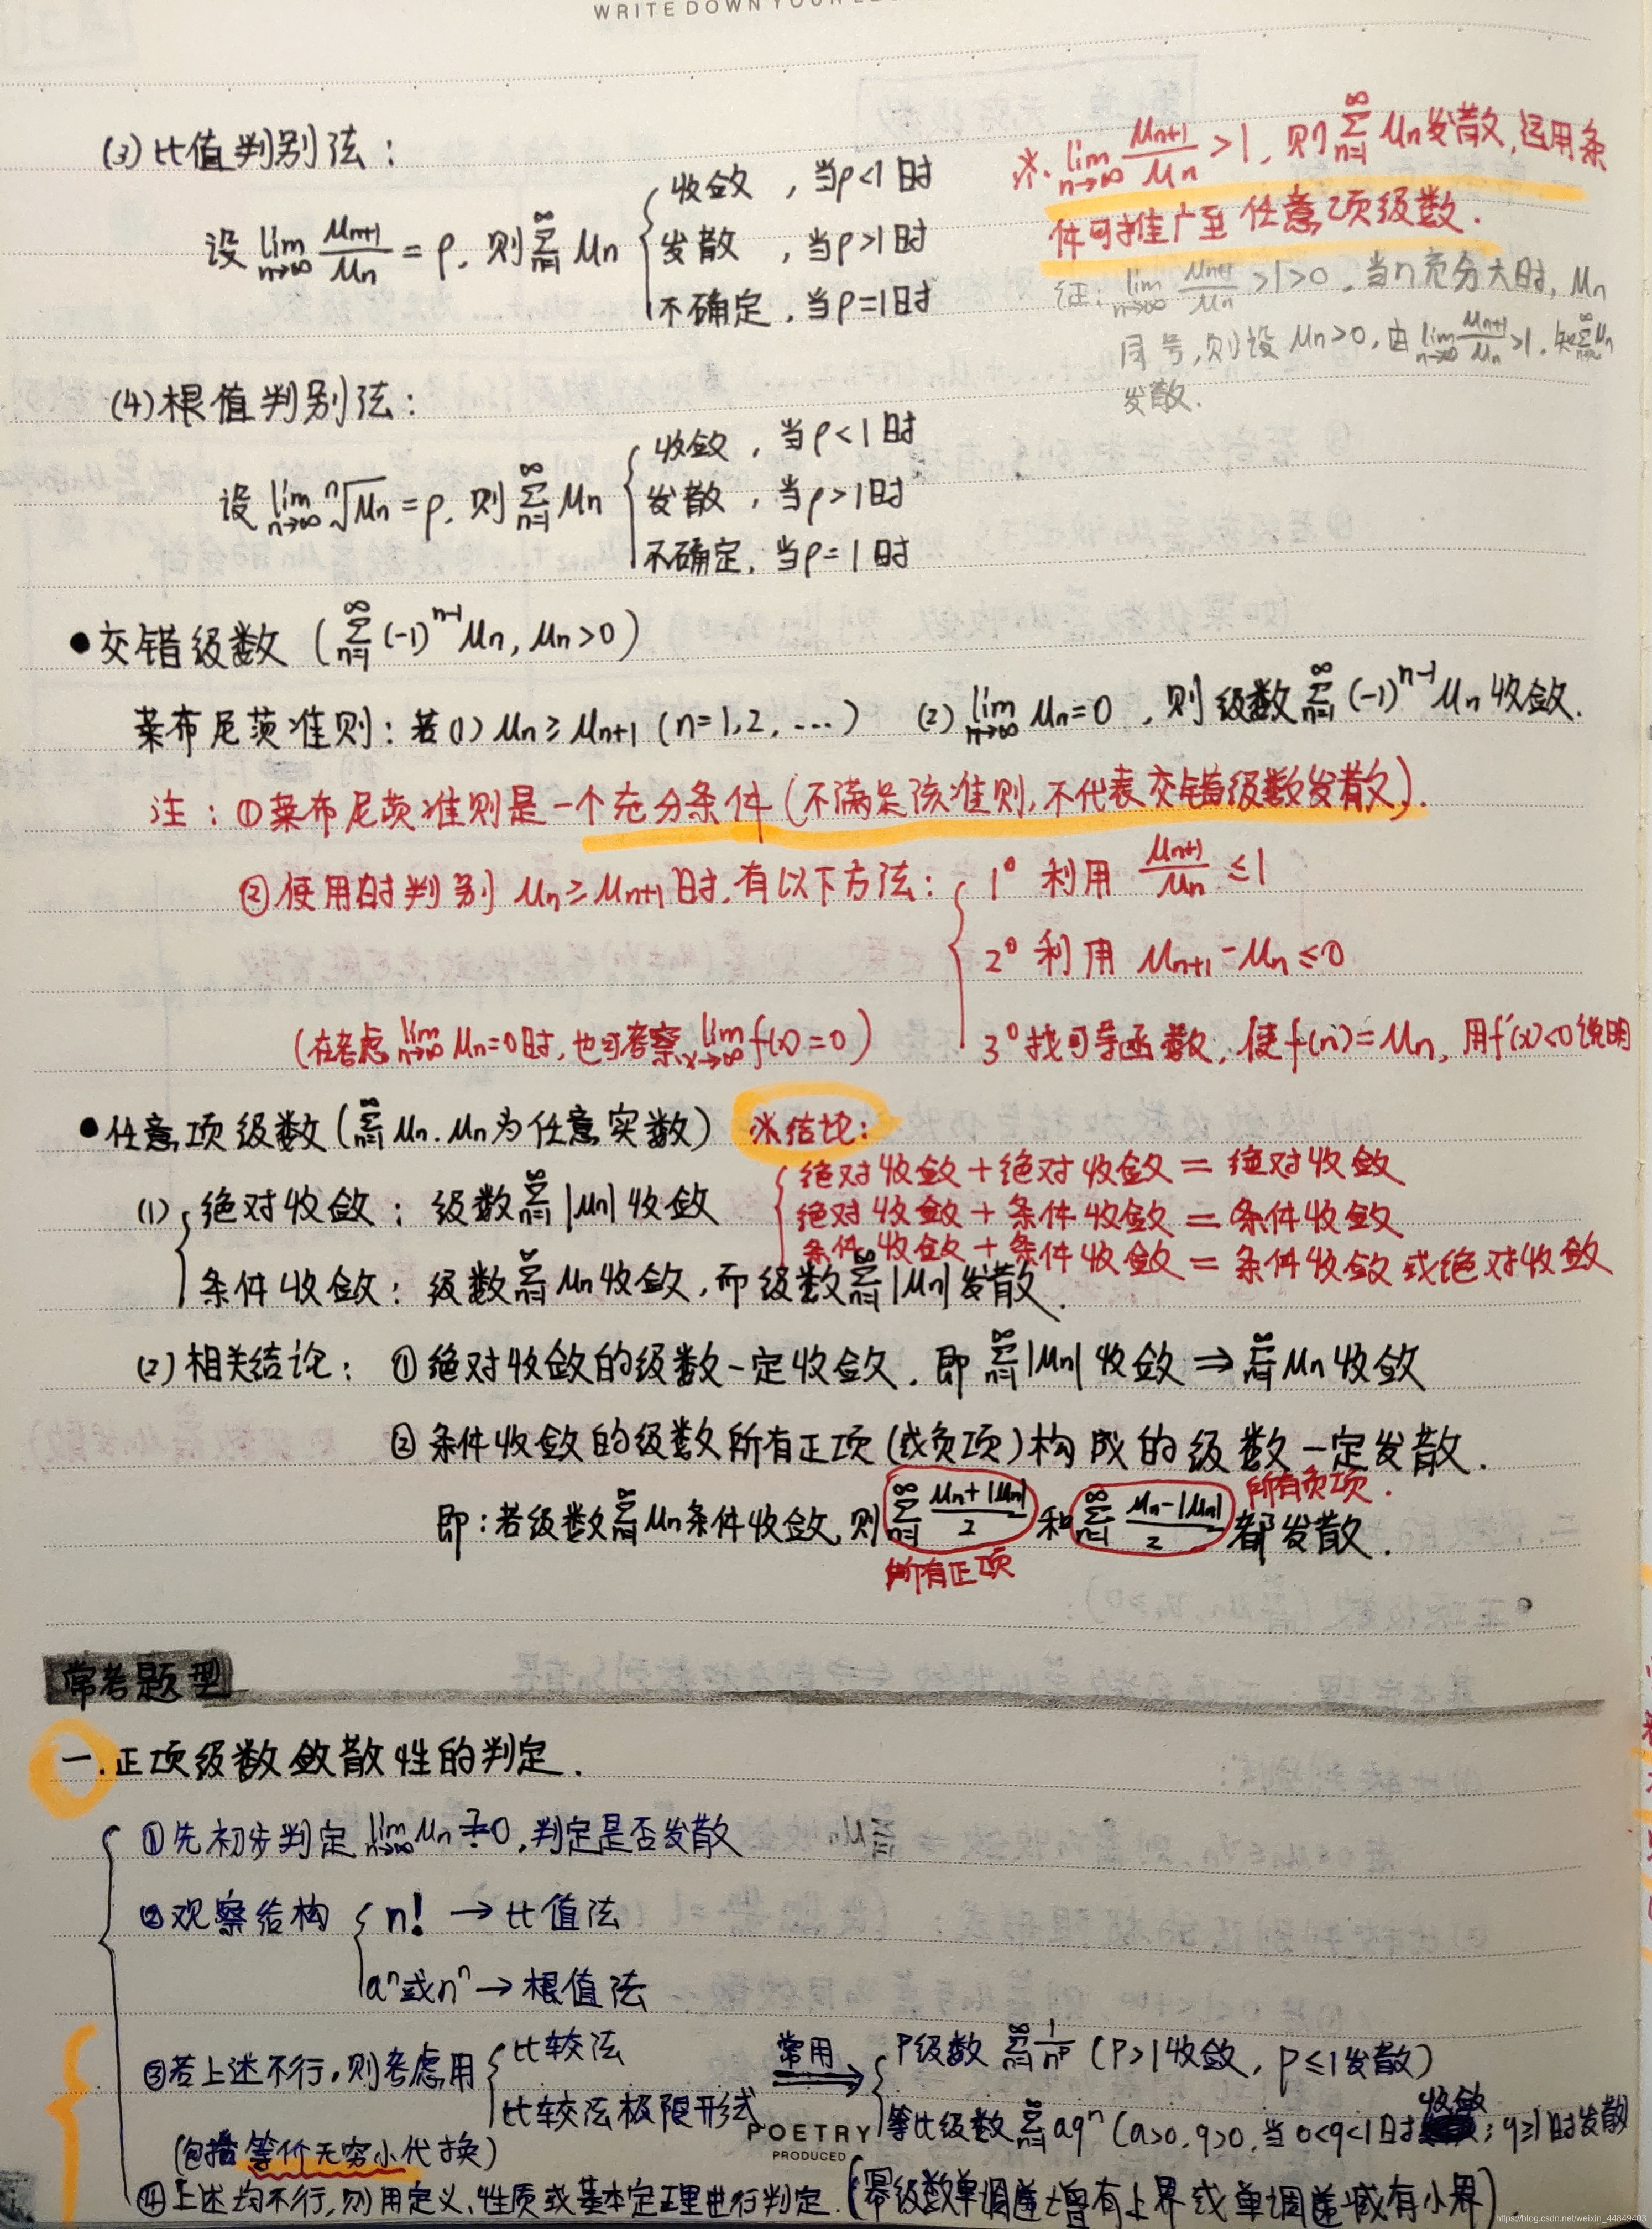 WRITE DOWN YOUR
(3) 比值判别法:
设 lim n→∞ μn+1/μn = ρ, 则 ∞∑n=1 μn { 收敛, 当ρ<1时
发散, 当ρ>1时
不确定, 当ρ=1时
※. lim n→∞ μn+1/μn >1, 则 ∞∑n=1 μn发散, 运用条
件可推广至 任意项级数.
证: lim n→∞ μn+1/μn >1>0, 当n充分大时, μn
同号, 则设 μn>0, 由 lim n→∞ μn+1/μn >1, 知 ∞∑ μn
发散.
(4) 根值判别法:
设 lim n→∞ ⁿ√μn = ρ, 则 ∞∑n=1 μn { 收敛, 当ρ<1时
发散, 当ρ>1时
不确定, 当ρ=1时
● 交错级数 ( ∞∑n=1 (-1)ⁿ⁻¹ μn, μn>0 )
莱布尼茨准则: 若(1) μn ≥ μn+1 (n=1,2,…) (2) lim n→∞ μn=0, 则级数 ∞∑n=1 (-1)ⁿ⁻¹ μn 收敛.
注: ①莱布尼茨准则是一个充分条件(不满足该准则,不代表交错级数发散).
②使用时判别 μn ≥ μn+1时, 有以下方法: { 1° 利用 μn+1/μn ≤1
2° 利用 μn+1-μn ≤0
3° 找可导函数, 使f(n)=μn, 用f'(x)<0说明
(在考虑 lim n→∞ μn=0时, 也可考察 lim x→∞ f(x)=0)
● 任意项级数 ( ∞∑n=1 μn. μn为任意实数)
※结论:
{ 绝对收敛+绝对收敛=绝对收敛
绝对收敛+条件收敛=条件收敛
条件收敛+条件收敛=条件收敛或绝对收敛
(1) { 绝对收敛: 级数 ∞∑n=1 |μn| 收敛
条件收敛: 级数 ∞∑n=1 μn收敛, 而级数 ∞∑n=1 |μn|发散.
(2) 相关结论: ①绝对收敛的级数一定收敛. 即 ∞∑n=1 |μn| 收敛 ⇒ ∞∑n=1 μn 收敛
② 条件收敛的级数所有正项(或负项)构成的级数一定发散.
即: 若级数 ∞∑n=1 μn条件收敛, 则 ∞∑n=1 (μn+|μn|)/2 和 ∞∑n=1 (μn-|μn|)/2 都发散.
所有负项.
所有正项
常考题型
一. 正项级数敛散性的判定.
{ ①先初步判定 lim n→∞ μn ≟ 0, 判定是否发散
②观察结构 { n! → 比值法
aⁿ或nⁿ → 根值法
③若上述不行, 则考虑用 { 比较法
比较法极限形式
常用 ⇒ { P级数 ∞∑n=1 1/nᵖ (P>1收敛, P≤1发散)
等比级数 ∞∑n=1 aqⁿ (a>0, q>0, 当0<q<1时收敛; q≥1时发散
(包括等价无穷小代换)
④上述均不行, 则用定义、性质或基本定理进行判定. (幂级数单调递增有上界或单调递减有下界)
POETRY
PRODUCED
https://blog.csdn.net/weixin_44849403